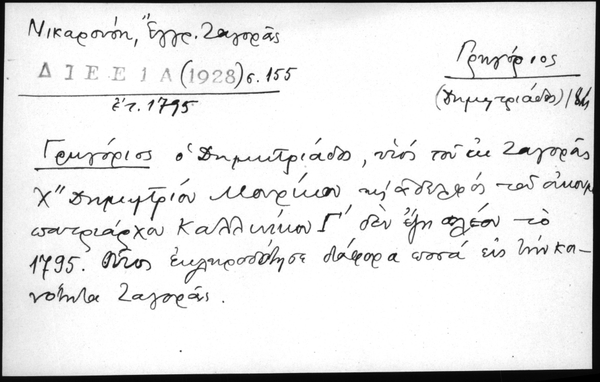 Νικαρούση, Ἔγγρ. Ζαγορᾶς
ΔΙΕΕ ΙΑ (1928) σ. 155
ἔτ. 1795
Γρηγόριος
(Δημητριάδος)
Γρηγόριος ὁ Δημητριάδος, υἱὸς τοῦ ἐκ Ζαγορᾶς
Χ" Δημητρίου Μαυρίκου κ ἀδελφὸς τοῦ οἰκουμ
πατριάρχου Καλλινίκου Γ' δὲν ἔζη πλέον τὸ
1795. Οὗτος ἐκληροδότησε διάφορα ποσὰ εἰς τὴν κοι-
νότητα Ζαγορᾶς.